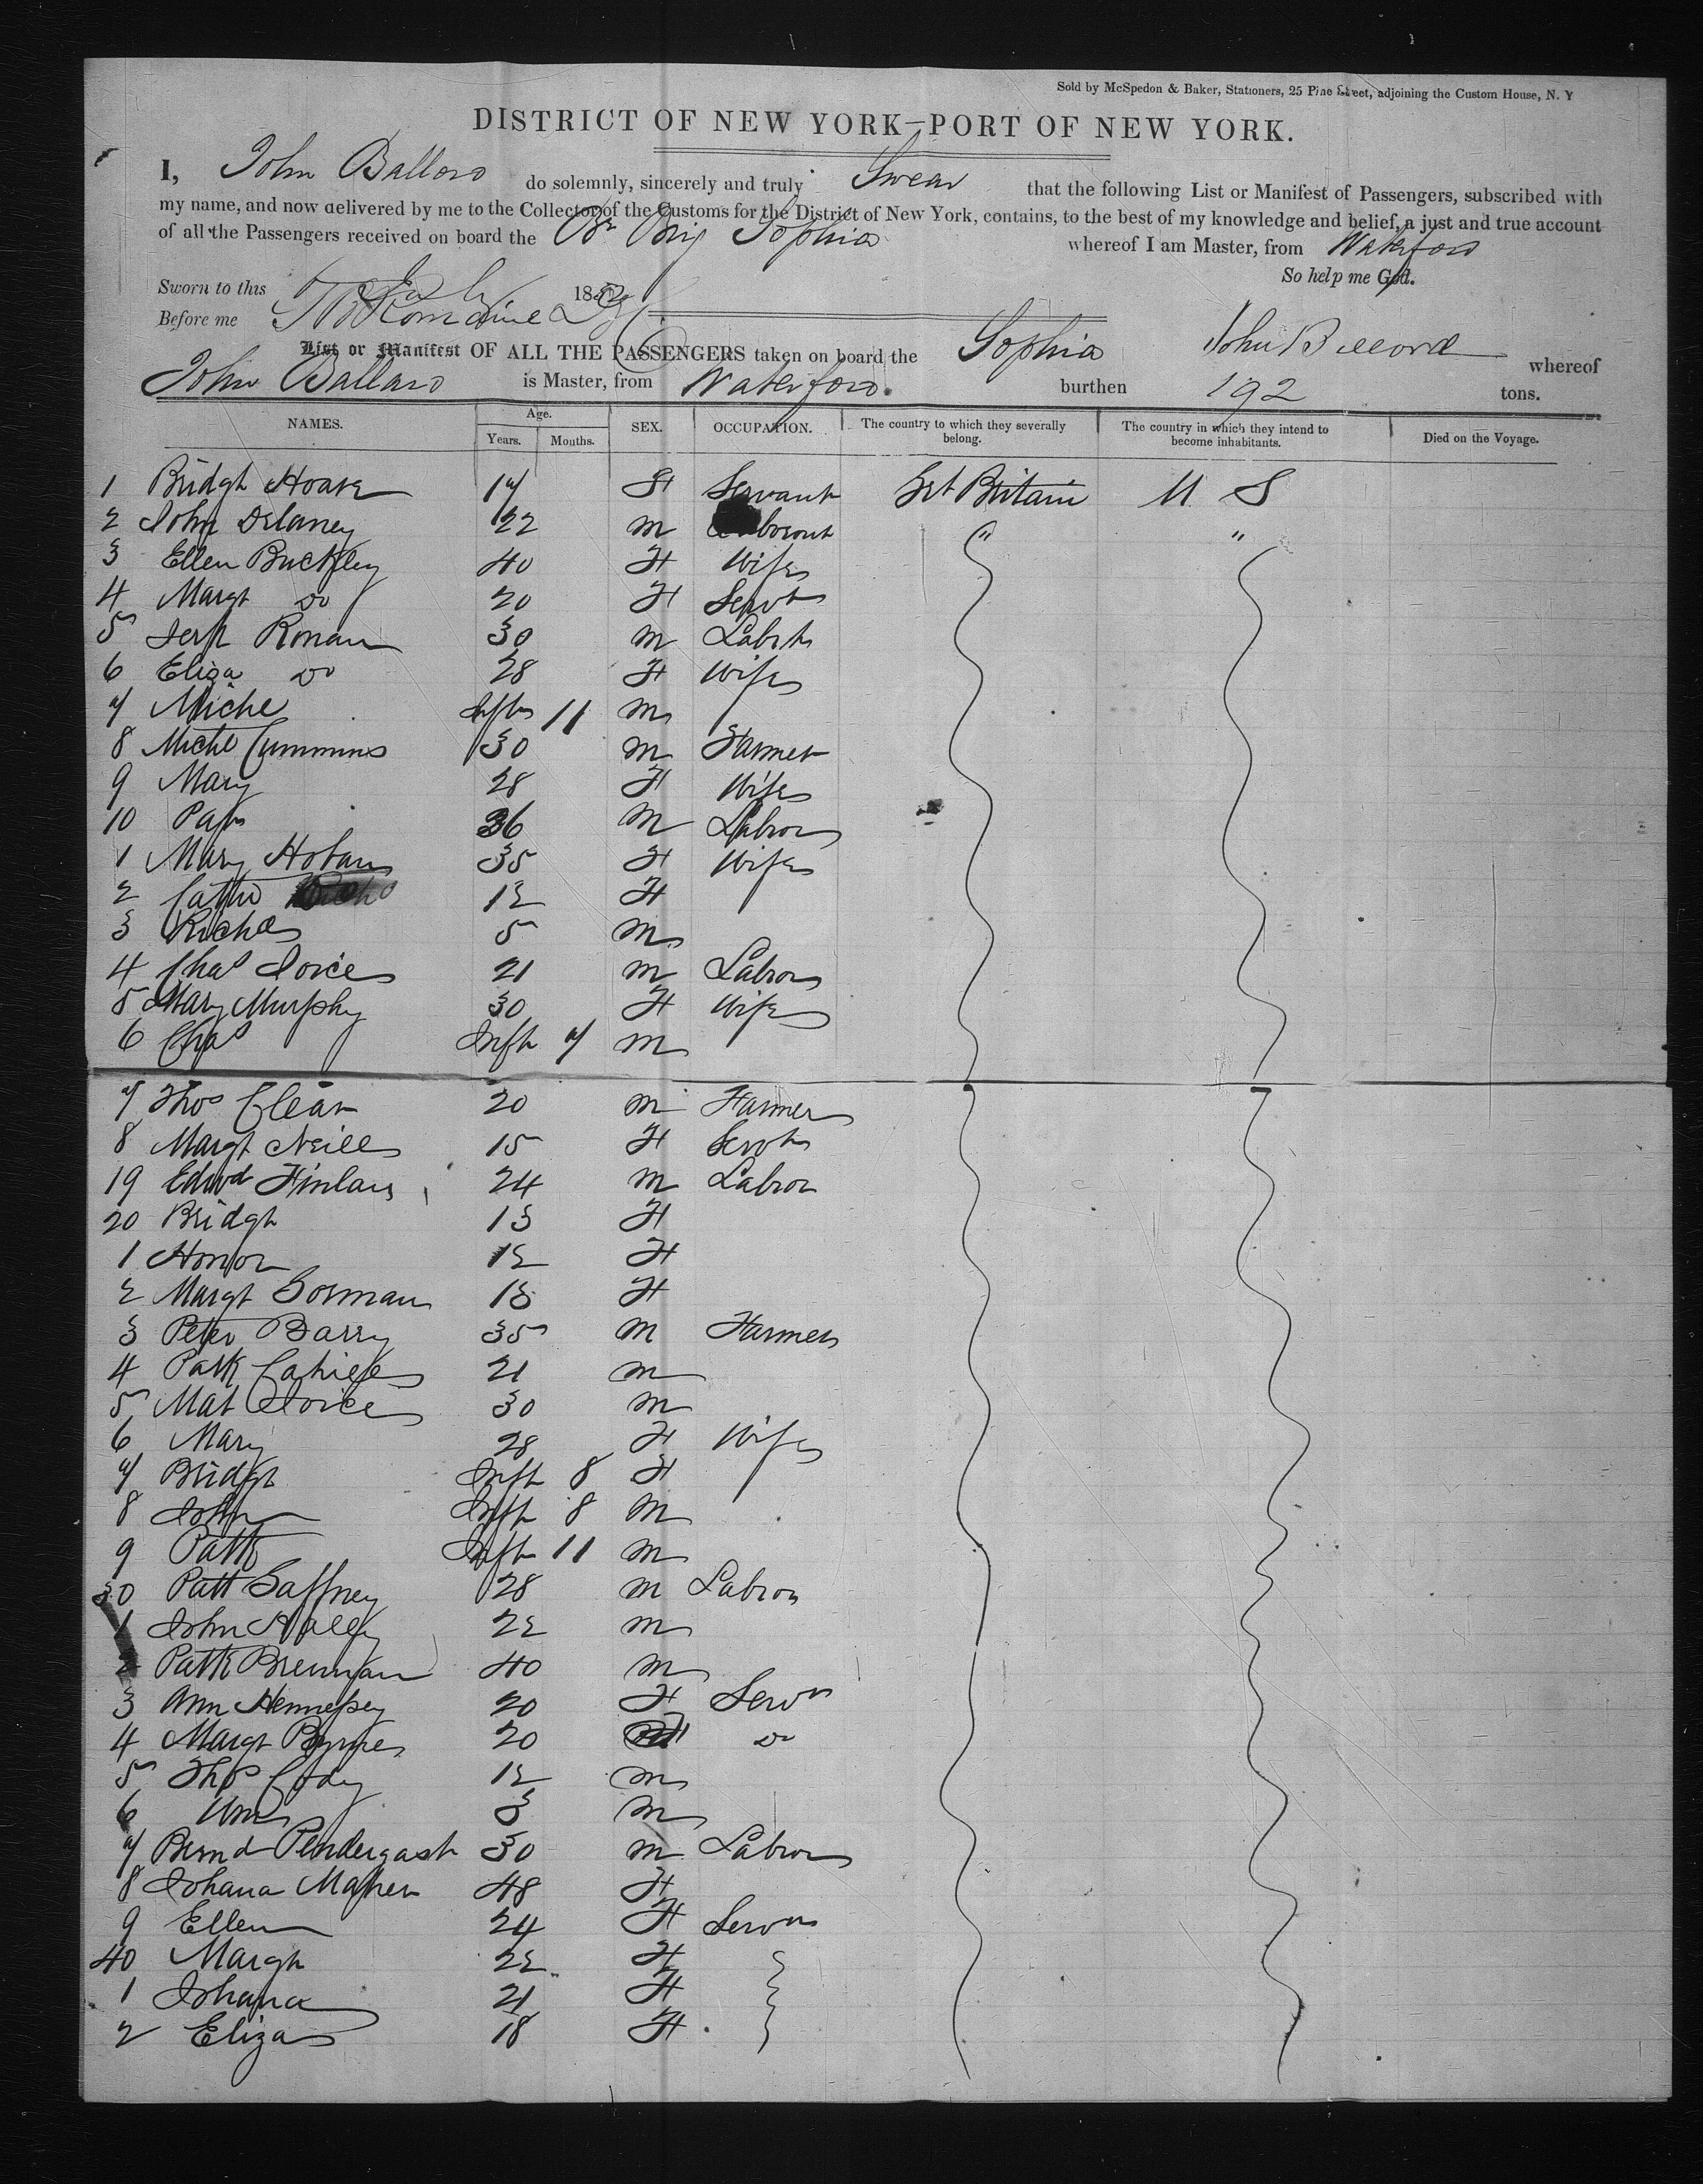 Sold by McSpedon & Baker, Stationers, 25 Pine Street, adjoining the Custom House, N. Y
DISTRICT OF NEW YORK—PORT OF NEW YORK.
I, John Ballard do solemnly, sincerely and truly Swear that the following List or Manifest of Passengers, subscribed with
my name, and now delivered by me to the Collector of the Customs for the District of New York, contains, to the best of my knowledge and belief, a just and true account
of all the Passengers received on board the Br Brig Sophia whereof I am Master, from Waterford
So help me God.
Sworn to this 185
Before me
List or Manifest OF ALL THE PASSENGERS taken on board the Sophia John Ballard whereof
John Ballard is Master, from Waterford. burthen 192 tons.
NAMES. Age. Years. Months. SEX. OCCUPATION. The country to which they severally belong. The country in which they intend to become inhabitants. Died on the Voyage.
1 Bridgt Hoare 17 F Servant Grt Britain U S
2 John Delaney 22 m " "
3 Ellen Buckley 40 F Wife
4 Margt Do 20 F Servt
5 Ronan 30 m Labr
6 Eliza Do 28 F Wife
7 Michl Inft 11 m
8 Michl Cummins 30 m Farmer
9 Mary 28 F Wife
10 Patk 36 m Labror
1 Mary Hoban 35 F Wife
2 Cathe 12 F
3 Richd 5 m
4 Chas Joice 21 m Labror
5 Mary Murphy 30 F Wife
6 Chas Inft 7 m
7 Thos Clear 20 m Farmer
8 Margt Neill 15 F Servt
19 Edwd Finlan 24 m Labror
20 Bridgt 13 F
1 Honor 12 F
2 Margt Gorman 13 F
3 Peter Barry 35 m Farmer
4 Patk Cahill 21 m
5 Mat Joice 30 m
6 Mary 28 F Wife
7 Bridgt Inft 8 F
8 John Inft 8 m
9 Pattk Inft 11 m
30 Patt Gaffney 28 m Labror
1 John Nally 22 m
2 Pattk Brennan 40 m
3 Ann Hennessey 20 F Servt
4 Margt Byrne 20 F Do
5 Thos Cody 12 m
6 Wm 8 m
7 Bernd Pendergast 30 m Labror
8 Johana Maher 48 F
9 Ellen 24 F Servt
40 Margt 22 F
1 Johana 21 F
2 Eliza 18 F